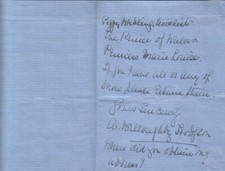 The Prince of Wales &
Princess Marie Louise.
If you have all or any of
these please return them
Yours Sincerely
A. Willoughby Hodgson
Where did you obtain my
address?